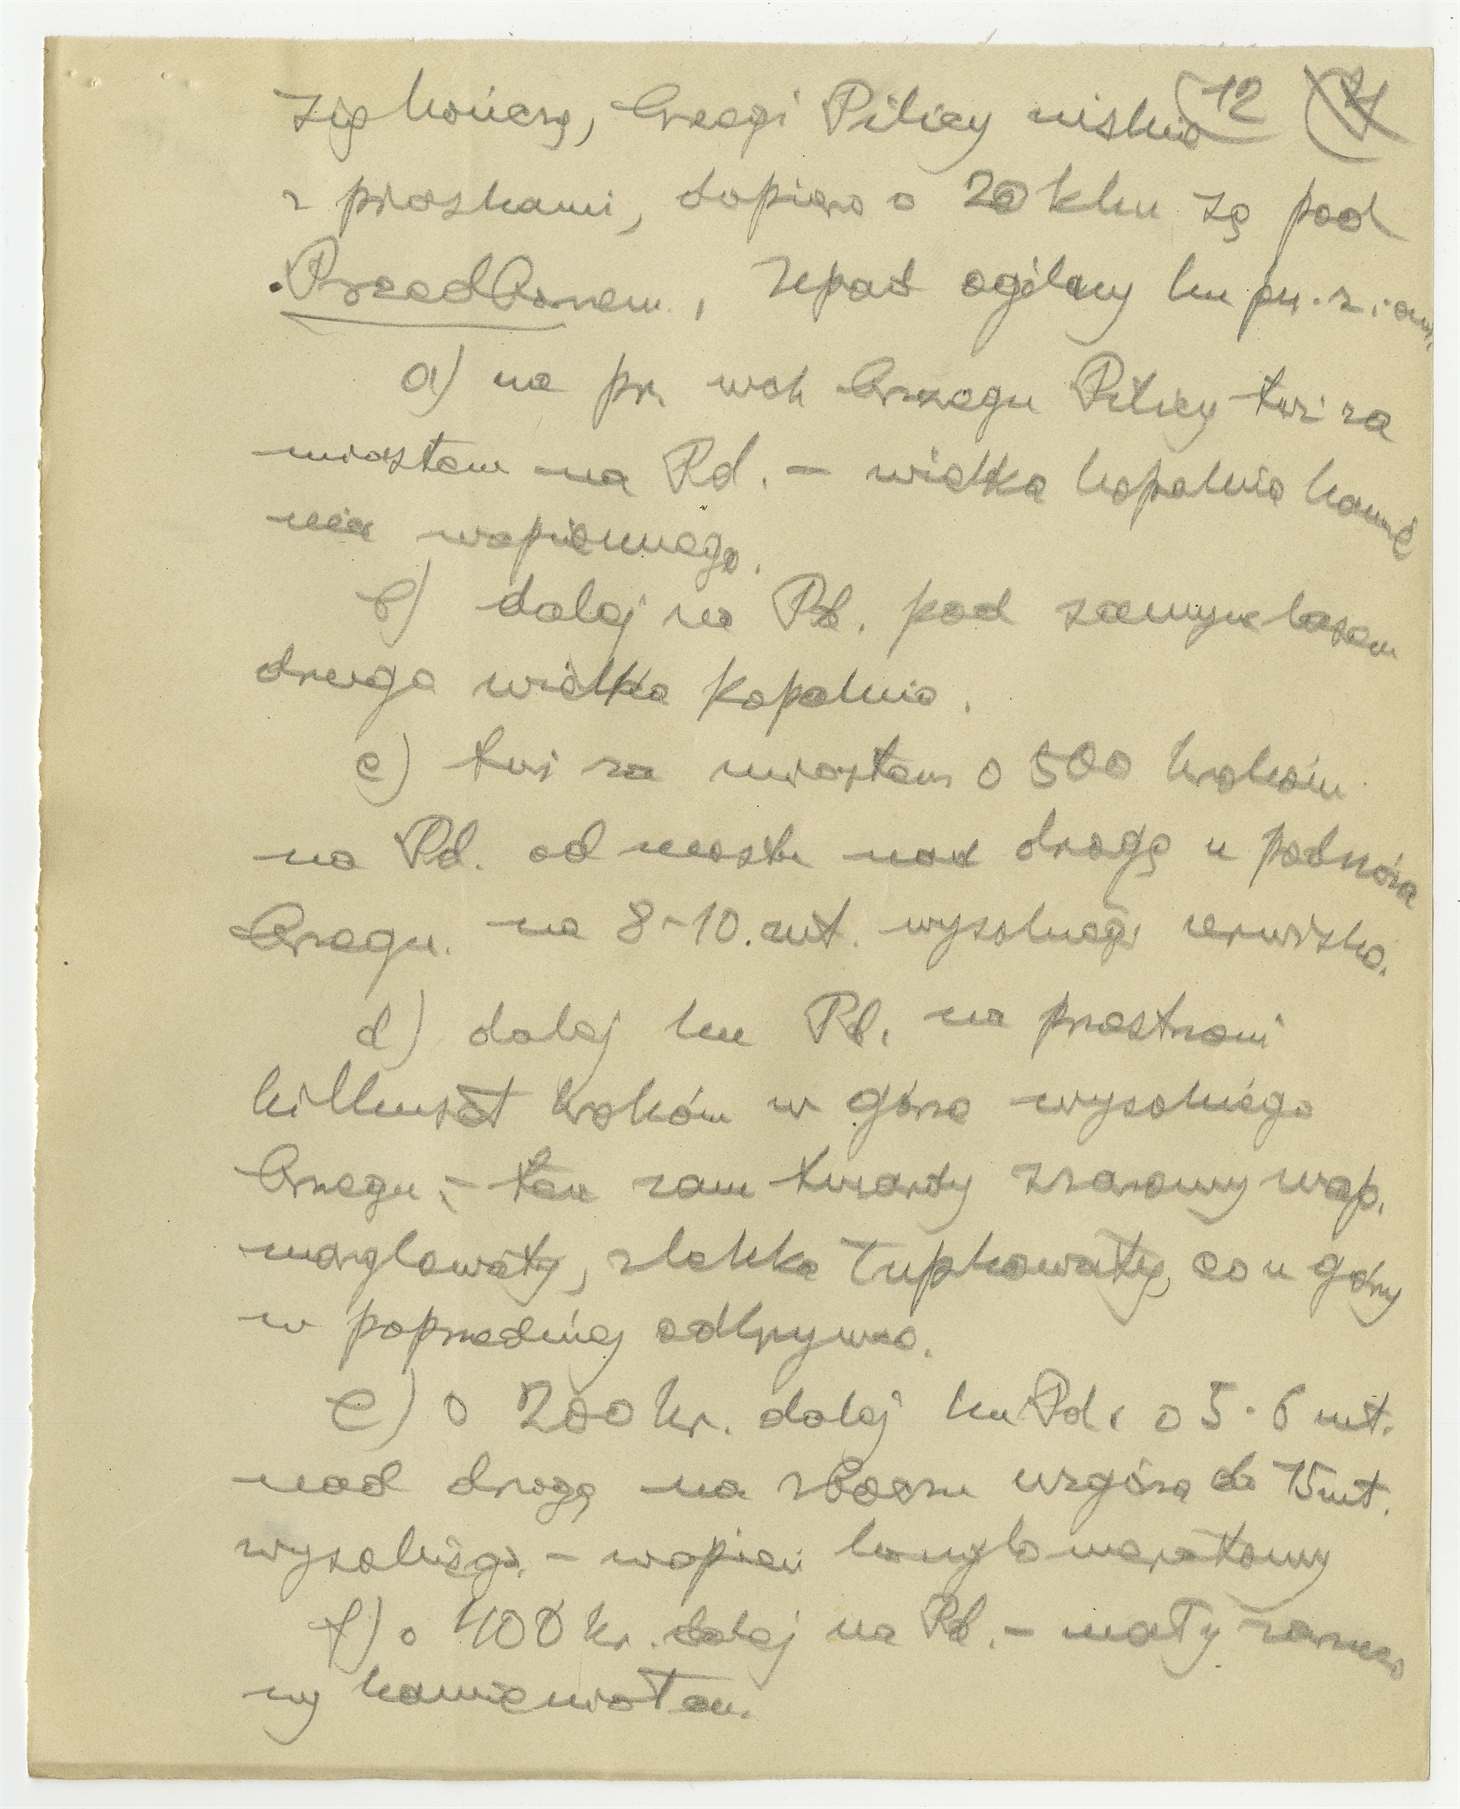 się kończą, brzegi Pilicy niskie 12
z piaskami, dopiero o 20 klm są pod
Przedborzem, spad ogólny ku pn.
a) na pr. brzegu Pilicy tuż za
miastem na Pd. – wielka kopalnia kamie
nia wapiennego.
b) dalej na Pd. pod samym lasem
druga wielka kopalnia.
c) tuż za miastem o 500 kroków
na Pd. od mostu nad drogą u podnóża
brzegu na 8-10 mt. wysokiego urwisko.
d) dalej ku Pd. na przestrzeni
kilkuset kroków w górze wysokiego
brzegu, – ten sam twardy szarawy wap.
marglowaty, zlekka łupkowaty, co u góry
w poprzedniej odkrywce.
e) o 200 kr. dalej ku Pd. o 5-6 mt.
nad drogą na zboczu wzgórza do 15 mt.
wysokiego, – wapień konglomeratowy
f) o 400 kr. dalej na Pd. – mały
ny kamieniołom.